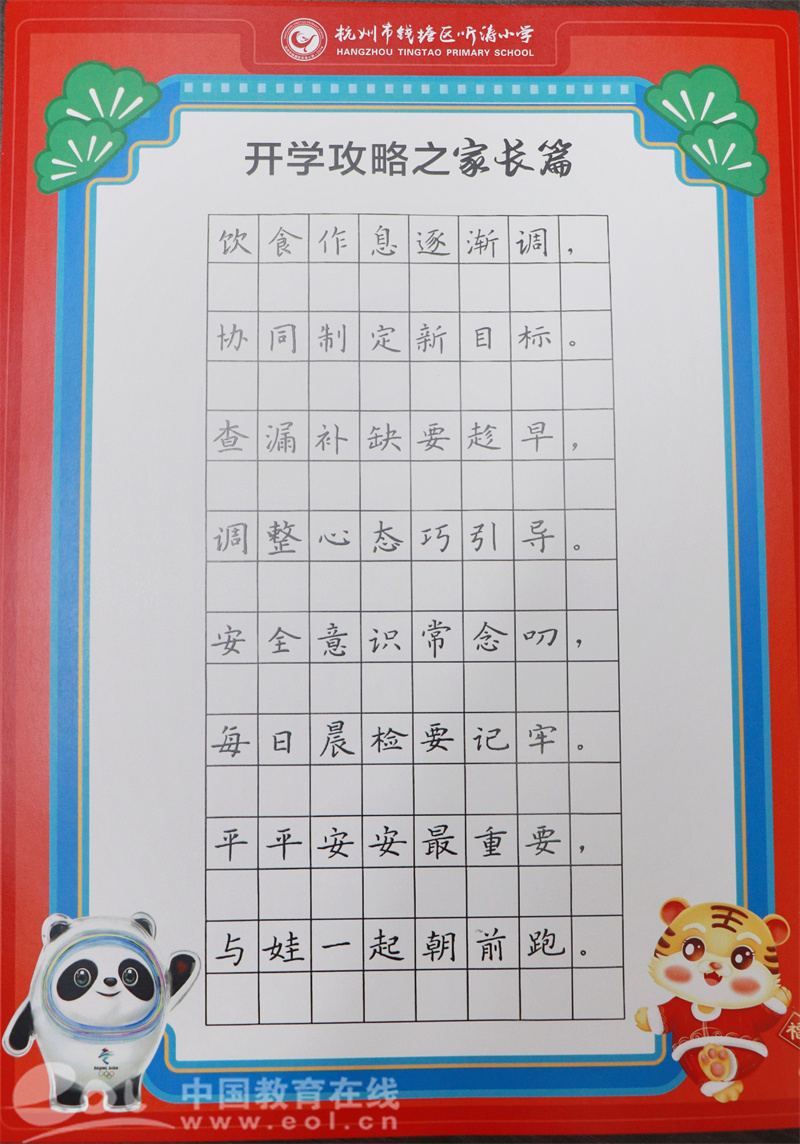 杭州市钱塘区听涛小学
HANGZHOU TINGTAO PRIMARY SCHOOL
开学攻略之家长篇
饮食作息逐渐调，
协同制定新目标。
查漏补缺要趁早，
调整心态巧引导。
安全意识常念叨，
每日晨检要记牢。
平平安安最重要，
与娃一起朝前跑。
王
福
BEIJING 2022
eol 中国教育在线
www.eol.cn